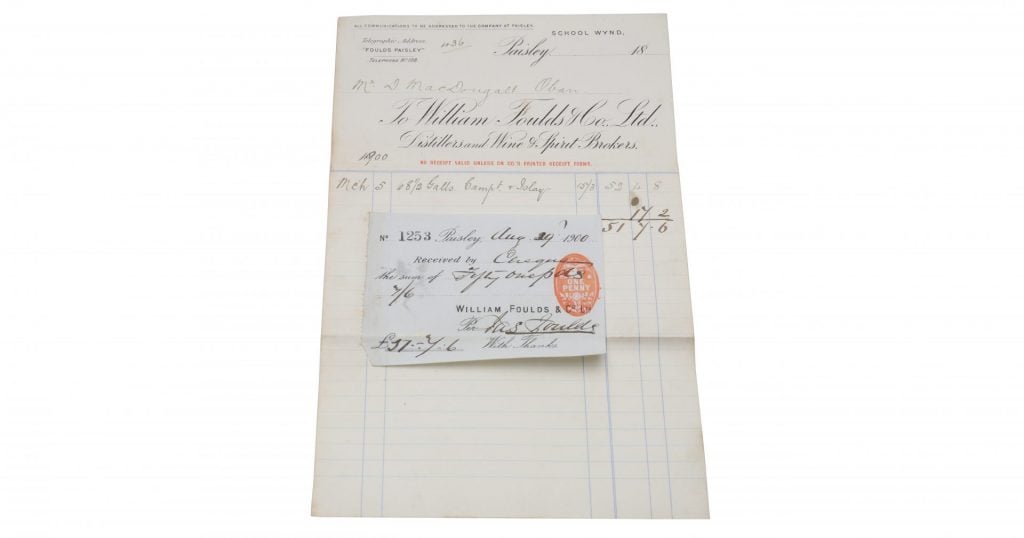 ALL COMMUNICATIONS TO BE ADDRESSED TO THE COMPANY AT PAISLEY.
SCHOOL WYND,
Telegraphic Address,
"FOULDS PAISLEY"
Paisley 18
TELEPHONE No 198
Mr. D MacDougall Oban
To William Foulds & Co., Ltd.,
Distillers and Wine & Spirit Brokers.
NO RECEIPT VALID UNLESS ON CO'S PRINTED RECEIPT FORMS.
1900
Mch 5 68 1/2 Galls. Campt. & Islay 15/3 52 4 8
17 2
51 7 . 6
No 1253 Paisley, Aug 29 1900
Received by Cheque
the sum of Fifty one pds
7/6
ONE
PENNY
WILLIAM FOULDS & Co Ltd
Per Jas Foulds
£51--7-6 With Thanks